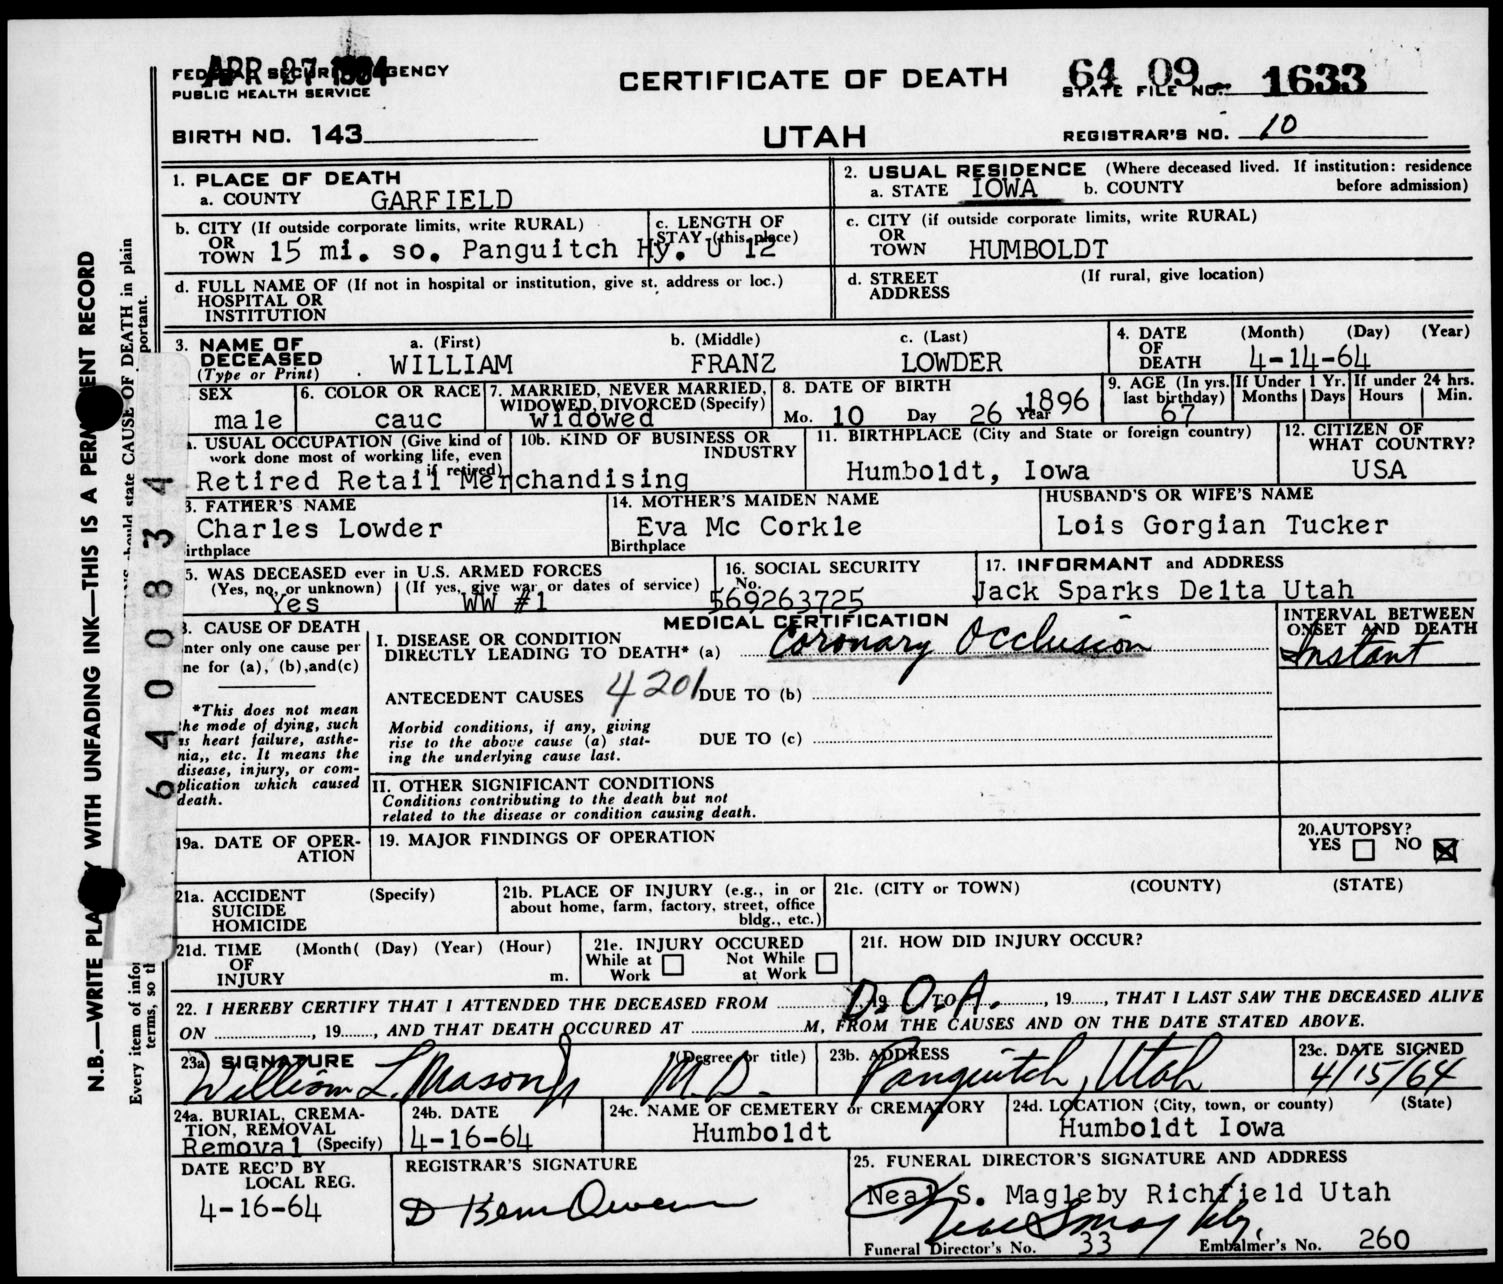 APR 27 1964
FEDERAL SECURITY AGENCY
PUBLIC HEALTH SERVICE
CERTIFICATE OF DEATH
64 09 1633
STATE FILE NO.
BIRTH NO. 143
UTAH
REGISTRAR'S NO. 10
1. PLACE OF DEATH
a. COUNTY GARFIELD
2. USUAL RESIDENCE (Where deceased lived. If institution: residence before admission)
a. STATE IOWA b. COUNTY
b. CITY (If outside corporate limits, write RURAL)
OR
TOWN 15 mi. so. Panguitch Hy. U 12
c. LENGTH OF
STAY (this place)
c. CITY (if outside corporate limits, write RURAL)
OR
TOWN HUMBOLDT
d. FULL NAME OF (If not in hospital or institution, give st. address or loc.)
HOSPITAL OR
INSTITUTION
d. STREET (If rural, give location)
ADDRESS
3. NAME OF
DECEASED
(Type or Print)
a. (First) b. (Middle) c. (Last)
WILLIAM FRANZ LOWDER
4. DATE (Month) (Day) (Year)
OF
DEATH 4-14-64
SEX
male
6. COLOR OR RACE
cauc
7. MARRIED, NEVER MARRIED,
WIDOWED, DIVORCED (Specify)
widowed
8. DATE OF BIRTH
Mo. 10 Day 26 Year 1896
9. AGE (In yrs.
last birthday)
67
If Under 1 Yr.
Months Days
If under 24 hrs.
Hours Min.
a. USUAL OCCUPATION (Give kind of
work done most of working life, even
if retired)
Retired Retail Merchandising
10b. KIND OF BUSINESS OR
INDUSTRY
11. BIRTHPLACE (City and State or foreign country)
Humboldt, Iowa
12. CITIZEN OF
WHAT COUNTRY?
USA
3. FATHER'S NAME
Charles Lowder
irthplace
14. MOTHER'S MAIDEN NAME
Eva Mc Corkle
Birthplace
HUSBAND'S OR WIFE'S NAME
Lois Gorgian Tucker
5. WAS DECEASED ever in U.S. ARMED FORCES
(Yes, no, or unknown) (If yes, give war or dates of service)
Yes WW #1
16. SOCIAL SECURITY
No.
569263725
17. INFORMANT and ADDRESS
Jack Sparks Delta Utah
MEDICAL CERTIFICATION
INTERVAL BETWEEN
ONSET AND DEATH
Instant
8. CAUSE OF DEATH
nter only one cause per
ne for (a), (b),and(c)
*This does not mean
he mode of dying, such
as heart failure, asthe-
nia,, etc. It means the
disease, injury, or com-
plication which caused
death.
I. DISEASE OR CONDITION
DIRECTLY LEADING TO DEATH* (a) Coronary Occlusion
ANTECEDENT CAUSES 4201 DUE TO (b)
Morbid conditions, if any, giving
rise to the above cause (a) stat-
ing the underlying cause last.
DUE TO (c)
II. OTHER SIGNIFICANT CONDITIONS
Conditions contributing to the death but not
related to the disease or condition causing death.
19a. DATE OF OPER-
ATION
19. MAJOR FINDINGS OF OPERATION
20.AUTOPSY?
YES NO
21a. ACCIDENT (Specify)
SUICIDE
HOMICIDE
21b. PLACE OF INJURY (e.g., in or
about home, farm, factory, street, office
bldg., etc.)
21c. (CITY or TOWN) (COUNTY) (STATE)
21d. TIME (Month( (Day) (Year) (Hour)
OF
INJURY m.
21e. INJURY OCCURED
While at Not While
Work at Work
21f. HOW DID INJURY OCCUR?
22. I HEREBY CERTIFY THAT I ATTENDED THE DECEASED FROM D.O.A. 19 TO , 19 , THAT I LAST SAW THE DECEASED ALIVE
ON , 19 , AND THAT DEATH OCCURED AT M, FROM THE CAUSES AND ON THE DATE STATED ABOVE.
23a SIGNATURE (Degree or title)
William L. Mason Jr M.D.
23b. ADDRESS
Panguitch, Utah
23c. DATE SIGNED
4/15/64
24a. BURIAL, CREMA-
TION, REMOVAL
Removal (Specify)
24b. DATE
4-16-64
24c. NAME OF CEMETERY or CREMATORY
Humboldt
24d. LOCATION (City, town, or county) (State)
Humboldt Iowa
DATE REC'D BY
LOCAL REG.
4-16-64
REGISTRAR'S SIGNATURE
D Bem Owens
25. FUNERAL DIRECTOR'S SIGNATURE AND ADDRESS
Neal S. Magleby Richfield Utah
Neal S Magleby
Funeral Director's No. 33 Embalmer's No. 260
N.B.—WRITE PLA Y WITH UNFADING INK—THIS IS A PERMANENT RECORD
should state CAUSE OF DEATH in plain
portant.
Every item of infor
terms, so th
6400834